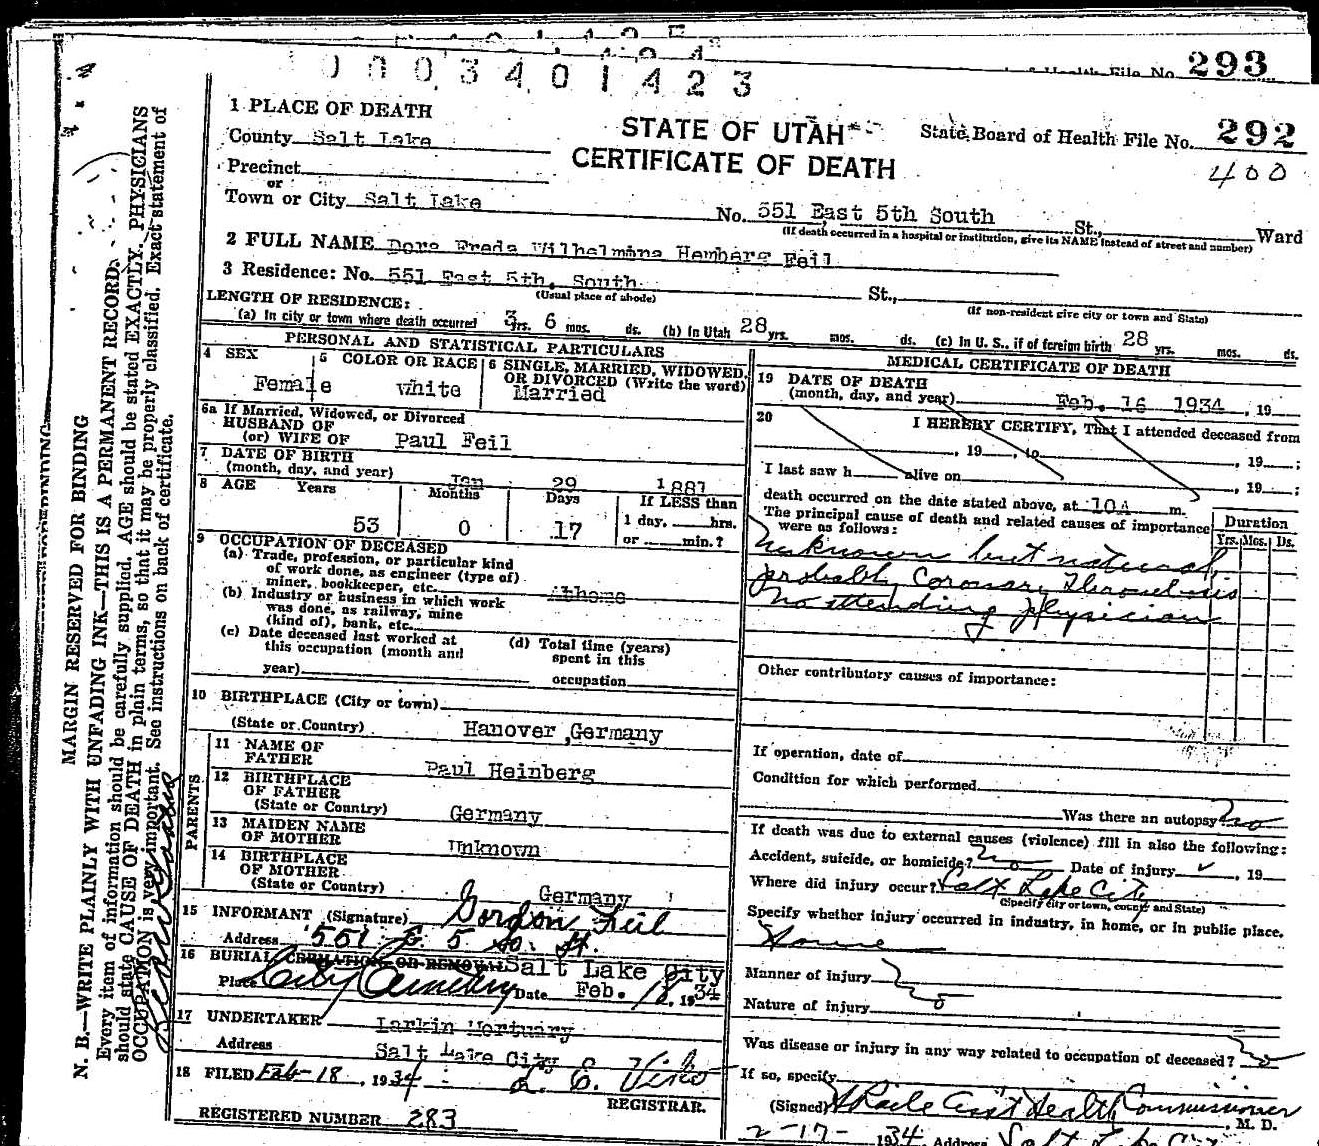 0003401423
293
1 PLACE OF DEATH
County Salt Lake
STATE OF UTAH
CERTIFICATE OF DEATH
State Board of Health File No. 292
400
Precinct
or
Town or City Salt Lake No. 551 East 5th South St., Ward
(If death occurred in a hospital or institution, give its NAME instead of street and number)
2 FULL NAME Dora Freda Wilhelmina Feil
3 Residence: No. 551 East 5th. South St.,
(Usual place of abode) (If non-resident give city or town and State)
LENGTH OF RESIDENCE:
(a) In city or town where death occurred 3 yrs. 6 mos. ds. (b) In Utah 28 yrs. mos. ds. (c) In U. S., if of foreign birth 28 yrs. mos. ds.
PERSONAL AND STATISTICAL PARTICULARS
4 SEX Female
5 COLOR OR RACE White
6 SINGLE, MARRIED, WIDOWED,
OR DIVORCED (Write the word)
Married
6a If Married, Widowed, or Divorced
HUSBAND OF
(or) WIFE OF Paul Feil
7 DATE OF BIRTH
(month, day, and year) Jan 29 1881
8 AGE Years Months Days If LESS than
53 0 17 1 day, hrs.
or min.?
9 OCCUPATION OF DECEASED
(a) Trade, profession, or particular kind
of work done, as engineer (type of)
miner, bookkeeper, etc. Athome
(b) Industry or business in which work
was done, as railway, mine
(kind of), bank, etc.
(c) Date deceased last worked at
this occupation (month and
year)
(d) Total time (years)
spent in this
occupation
10 BIRTHPLACE (City or town)
(State or Country) Hanover ,Germany
PARENTS
11 NAME OF
FATHER Paul Heinberg
12 BIRTHPLACE
OF FATHER
(State or Country) Germany
13 MAIDEN NAME
OF MOTHER Unknown
14 BIRTHPLACE
OF MOTHER
(State or Country) Germany
15 INFORMANT (Signature) Gordon Feil
Address 551 E 5 So. St.
16 BURIAL CREMATION OR REMOVAL Salt Lake City
Place City Cemetery Date Feb. 18, 1934
17 UNDERTAKER Larkin Mortuary
Address Salt Lake City
18 FILED Feb-18, 1934
REGISTRAR.
REGISTERED NUMBER 283
MEDICAL CERTIFICATE OF DEATH
19 DATE OF DEATH
(month, day, and year) Feb. 16 1934, 19
20 I HEREBY CERTIFY, That I attended deceased from
, 19 , to , 19 ;
I last saw h alive on , 19 ;
death occurred on the date stated above, at 10A m.
The principal cause of death and related causes of importance
were as follows:
Duration
Yrs. Mos. Ds.
Unknown but natural
probably Coronary Thrombosis
No attending physician
Other contributory causes of importance:
If operation, date of
Condition for which performed
Was there an autopsy? no
If death was due to external causes (violence) fill in also the following:
Accident, suicide, or homicide? no Date of injury , 19
Where did injury occur? Salt Lake City
(Specify city or town, county and State)
Specify whether injury occurred in industry, in home, or in public place.
Home
Manner of injury
Nature of injury
Was disease or injury in any way related to occupation of deceased? no
If so, specify
(Signed) Asst Health Commissioner, M. D.
2-17- 1934 Address Salt L
MARGIN RESERVED FOR BINDING
N. B.—WRITE PLAINLY WITH UNFADING INK—THIS IS A PERMANENT RECORD.
Every item of information should be carefully supplied. AGE should be stated EXACTLY. PHYSICIANS
should state CAUSE OF DEATH in plain terms, so that it may be properly classified. Exact statement of
OCCUPATION is very important. See instructions on back of certificate.